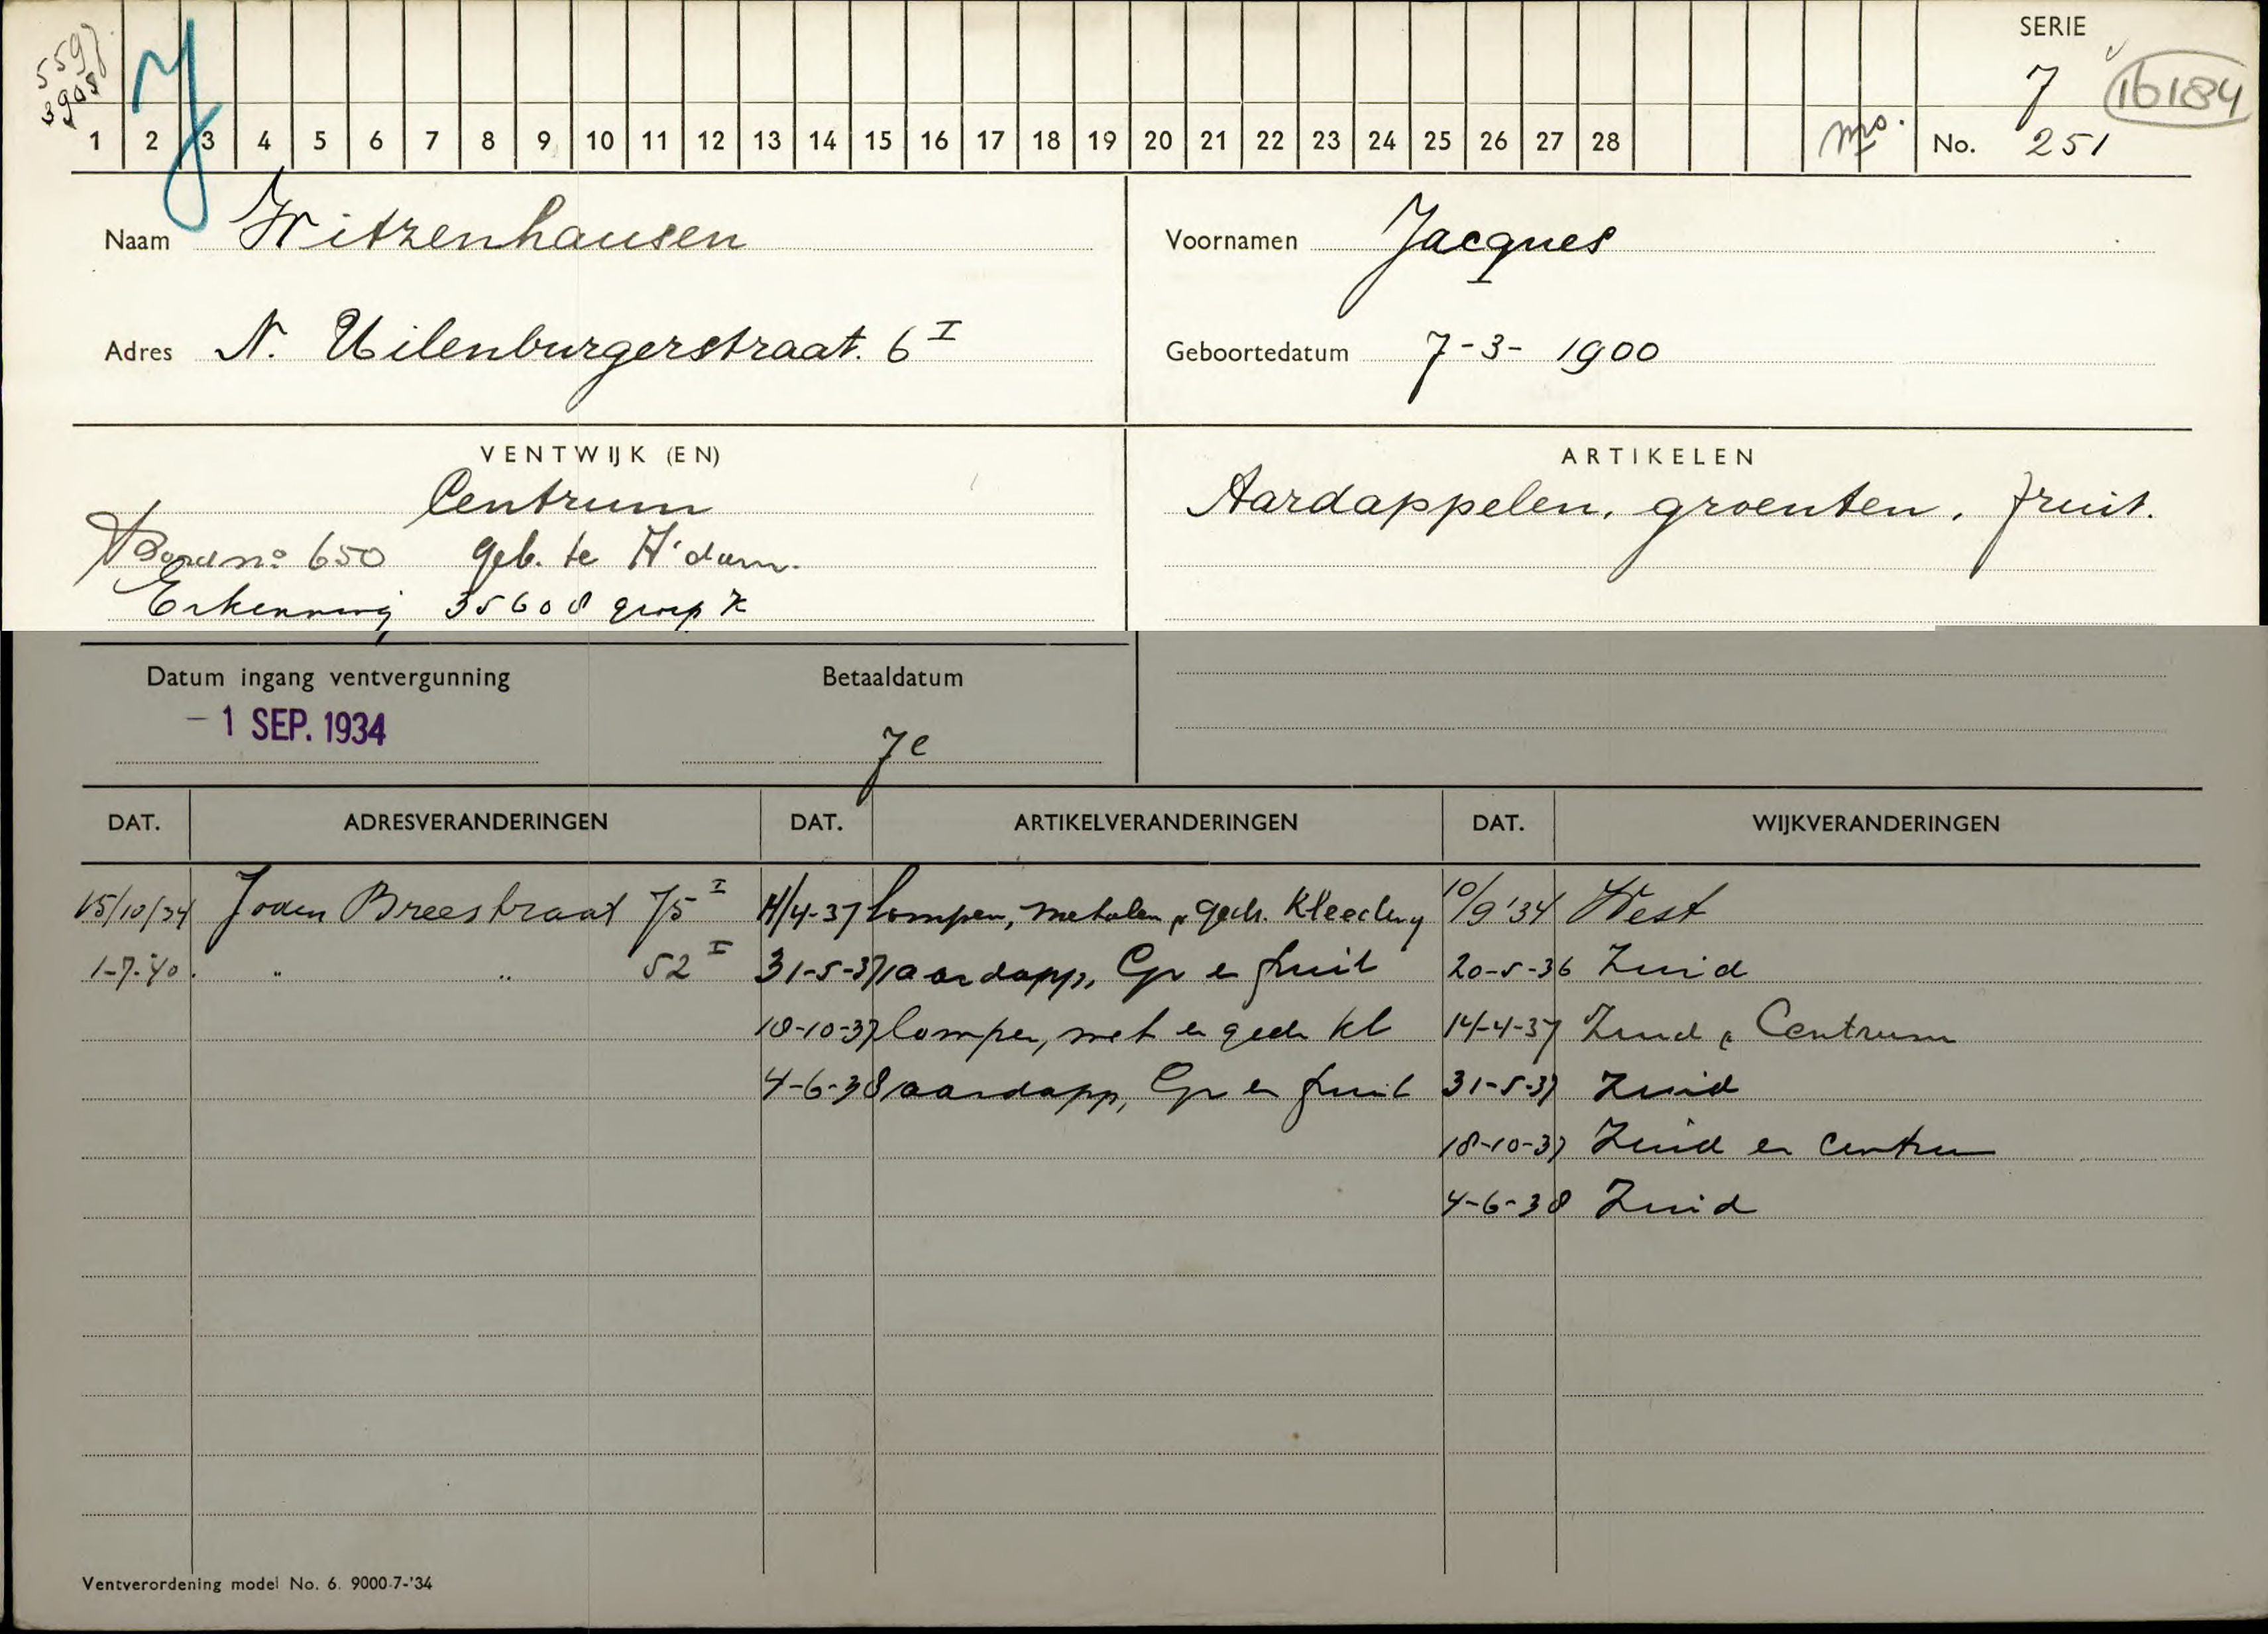 SERIE
5597
3908
J
7
16184
1 2 3 4 5 6 7 8 9 10 11 12 13 14 15 16 17 18 19 20 21 22 23 24 25 26 27 28
No. 251
Naam Witzenhausen
Voornamen Jacques
Adres N. Uilenburgerstraat. 6 I
Geboortedatum 7-3-1900
VENTWIJK (EN)
ARTIKELEN
Centrum
Aardappelen, groenten, fruit.
no 650 geb. te A'dam.
Erkenning 35608 groep K
Datum ingang ventvergunning
Betaaldatum
- 1 SEP. 1934
7e
DAT. ADRESVERANDERINGEN DAT. ARTIKELVERANDERINGEN DAT. WIJKVERANDERINGEN
15/10/34 Joden Breestraat 75 I 14/4-37 lompen, metalen, gedr. Kleeding 10/9'34 West
1-7-'40. " " 52 I 31-5-37 aardapp, Gr en fruit 20-5-36 Zuid
18-10-37 lompen, met en gedr kl 14-4-37 Zuid & Centrum
4-6-38 aardapp, Gr en fruit 31-5-37 Zuid
18-10-37 Zuid en Centrum
4-6-38 Zuid
Ventverordening model No. 6. 9000-7-'34